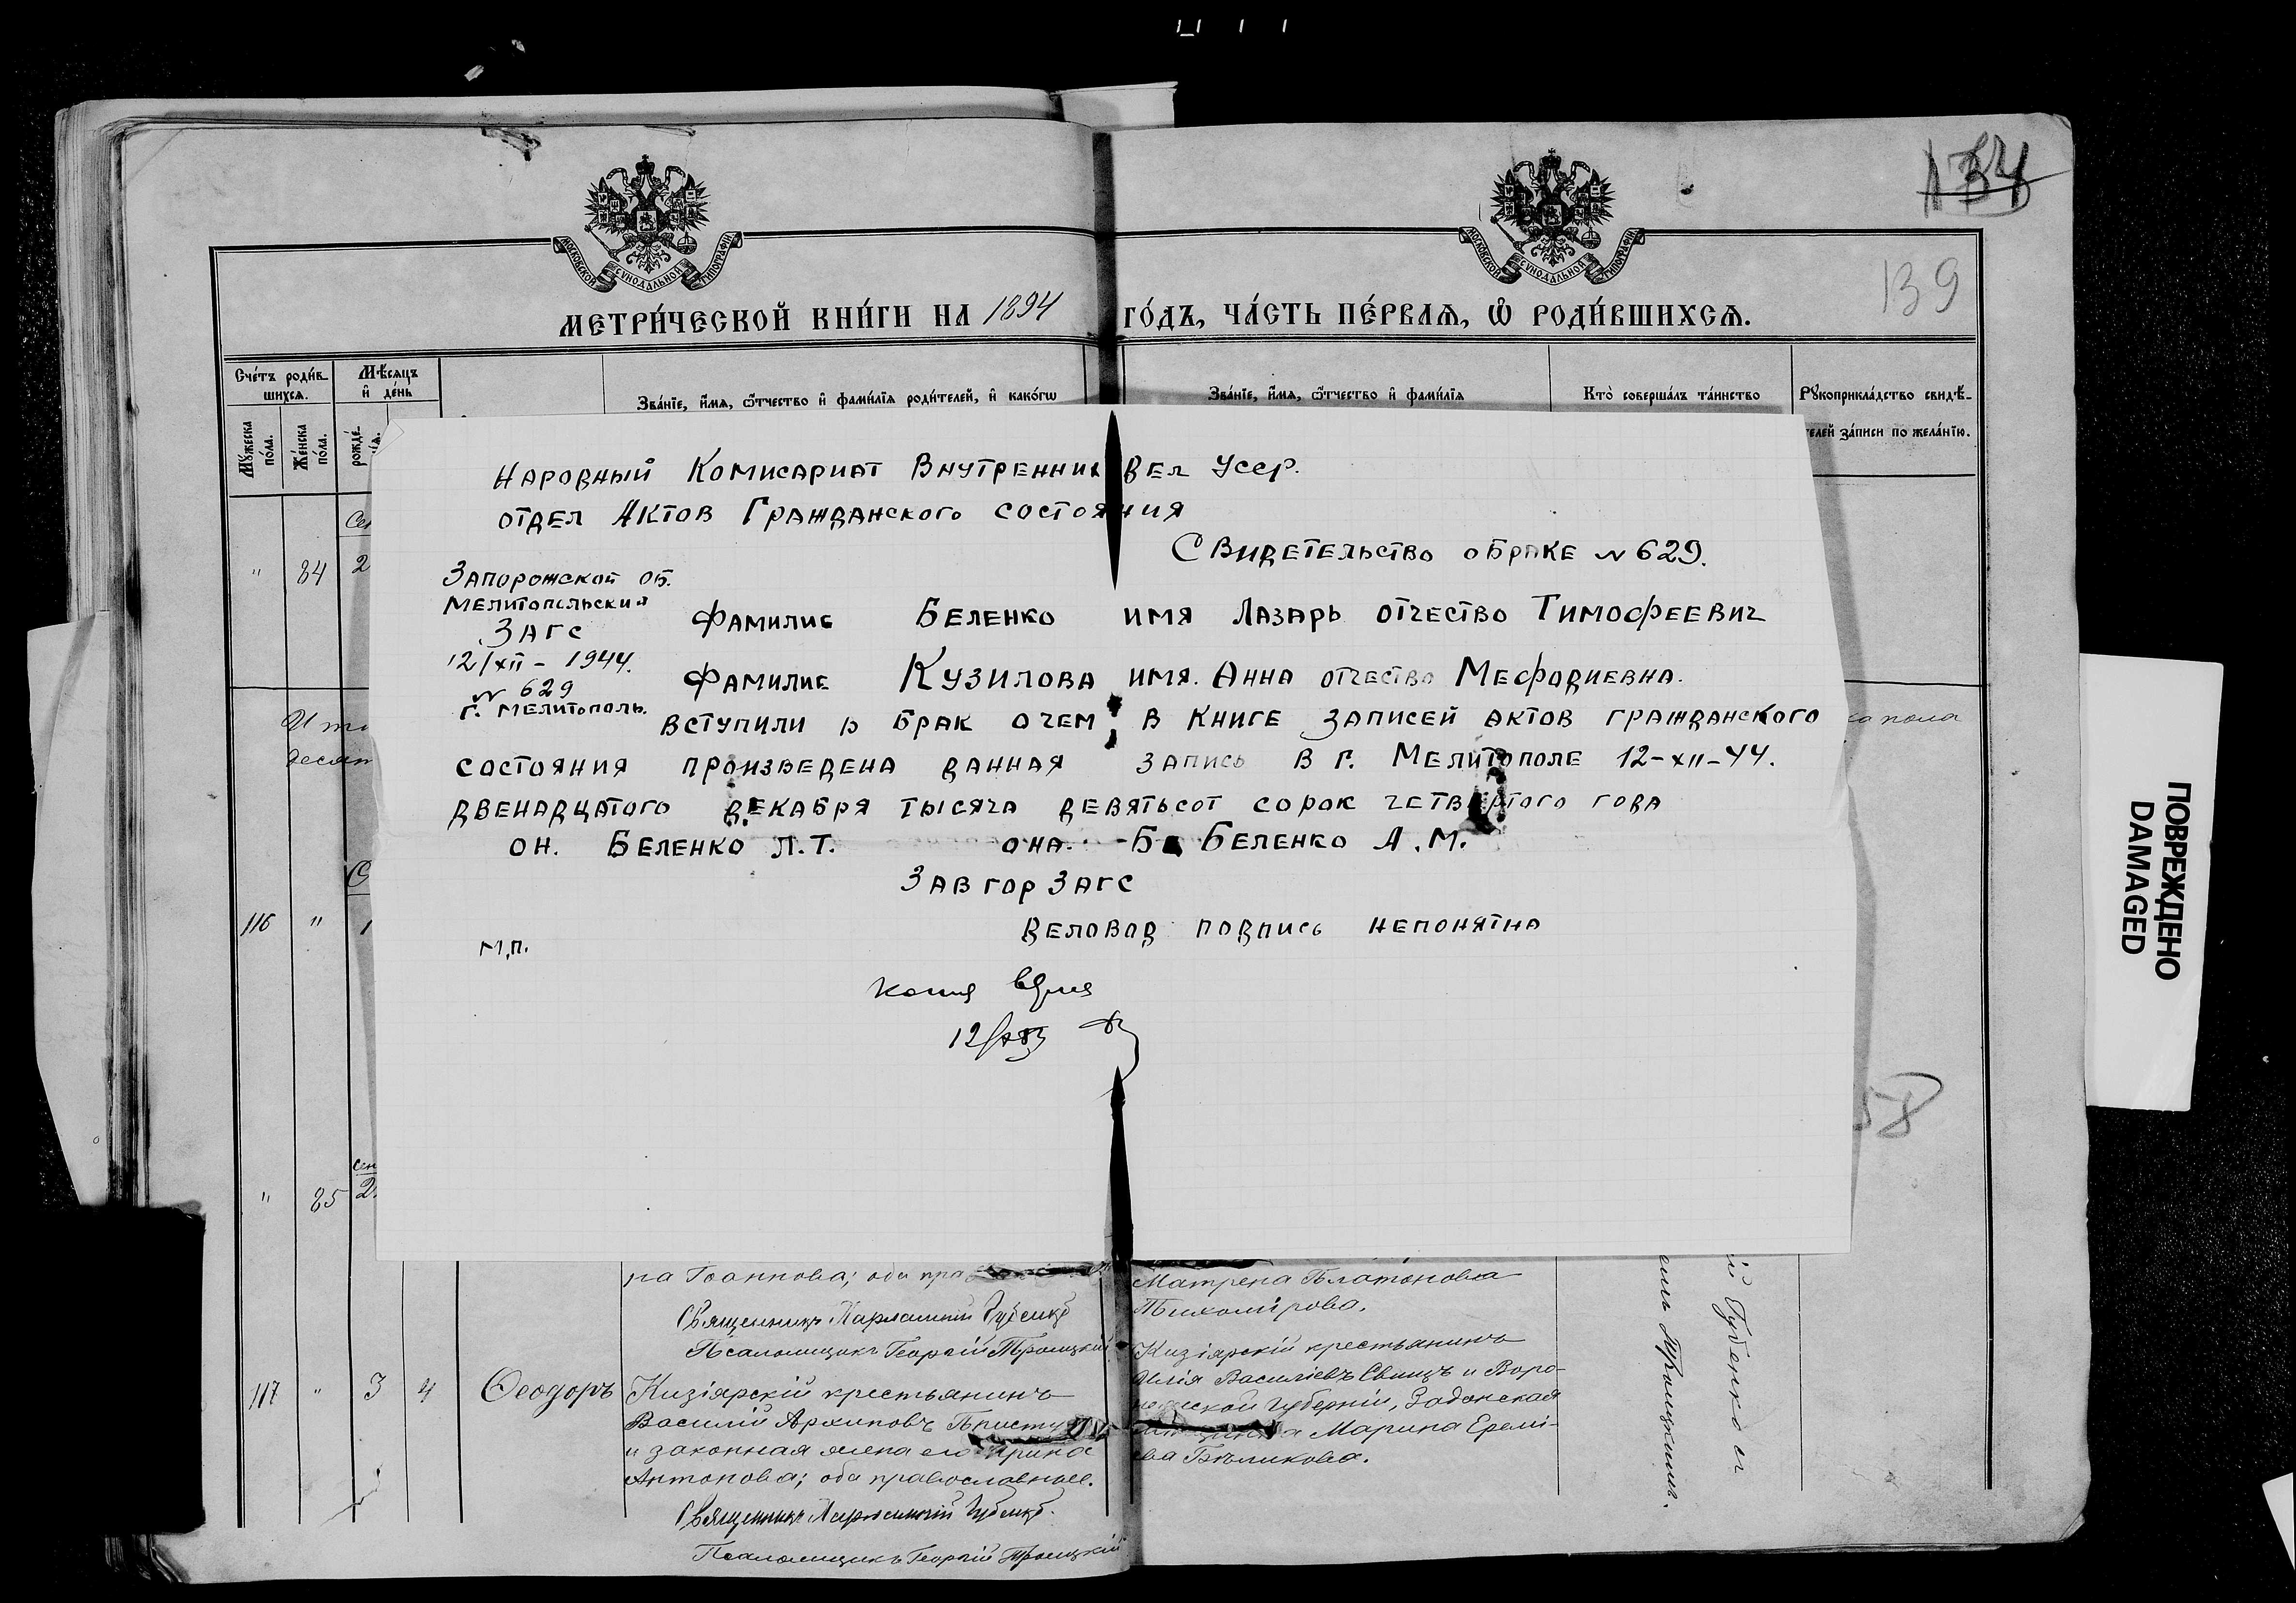 134
139
МОСКОВСКОЙ СѴНОДАЛЬНОЙ ТИПОГРАФІИ
МОСКОВСКОЙ СѴНОДАЛЬНОЙ ТИПОГРАФІИ
МЕТРИ́ЧЕСКОЙ КНИ́ГИ НА 1894 ГО́ДЪ, ЧА́СТЬ ПЕ́РВАѦ, Ѽ РОДИ́ВШИХСѦ.
Сче́тъ роди́в-
шихсѧ.
Мѣ́сѧцъ
и҆ де́нь
Мꙋ́жеска
по́ла.
Же́нска
по́ла.
рожде́-
нїѧ.
Зва́нїе, и҆́мѧ, ѻ҆́тчество и҆ фами́лїѧ роди́телей, и҆ како́гѡ
Зва́нїе, и҆́мѧ, ѻ҆́тчество и҆ фами́лїѧ
Кто̀ соверша́лъ та́инство
Рꙋкоприкла́дство свидѣ́-
телей за́писи по жела́нїю.
" 84 2
НАРОДНЫЙ КОМИСАРИАТ ВНУТРЕННИХ ДЕЛ УССР.
ОТДЕЛ АКТОВ ГРАЖДАНСКОГО СОСТОЯНИЯ
СВИДЕТЕЛЬСТВО О БРАКЕ N 629.
ЗАПОРОЖСКОЙ ОБ.
МЕЛИТОПОЛЬСКИЙ
ЗАГС
12/XII - 1944.
N 629
Г. МЕЛИТОПОЛЬ.
ФАМИЛИЕ БЕЛЕНКО ИМЯ ЛАЗАРЬ ОТЧЕСТВО ТИМОФЕЕВИЧ
ФАМИЛИЕ КУЗИЛОВА ИМЯ. АННА ОТЧЕСТВО МЕФОДИЕВНА.
ВСТУПИЛИ В БРАК О ЧЕМ В КНИГЕ ЗАПИСЕЙ АКТОВ ГРАЖДАНСКОГО
СОСТОЯНИЯ ПРОИЗВЕДЕНА ДАННАЯ ЗАПИСЬ В Г. МЕЛИТОПОЛЕ 12-XII-44.
ДВЕНАДЦАТОГО ДЕКАБРЯ ТЫСЯЧА ДЕВЯТЬСОТ СОРОК ЧЕТВЕРТОГО ГОДА
ОН. БЕЛЕНКО Л.Т. ОНА. - Б БЕЛЕНКО А.М.
ЗАВ ГОР ЗАГС
ДЕЛОВОД ПОДПИСЬ НЕПОНЯТНА
М.П.
копия верна
пола
116 " 1
58
" 85 2
на Іоаннова; оба пра
Священникъ
Псаломщикъ Георгій Троицкій
Матрена Платонова
Тихомірова.
117 " 3 4 Ѳеодоръ
Кизіярскій крестьянинъ
Василій Архиповъ
и законная жена его Ирина
Антонова; оба православные.
Священникъ
Псаломщикъ Георгій Троицкій
Кизіярскій крестьянинъ
Илія Василіевъ Свищъ и Воро-
нежской губерніи, Задонская
Марина Еремі-
ева Бѣликова.
Губенко съ
Троицкимъ.
ПОВРЕЖДЕНО
DAMAGED